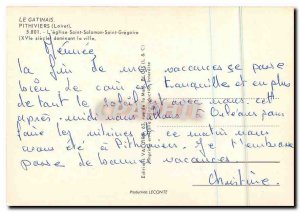 LE GATINAIS
PITHIVIERS (Loiret).
5.801. - L'église Saint-Salomon-Saint-Grégoire
(XVIe siècle) dominant la ville.
la fin de mes vacances se passe
bien de tranquille et en plus
de tout le soleil avec nous. cet
après-midi nous allons Orléans pour
faire les vitrines ce matin nous
avons été à Pithiviers. Je t'embrasse
passe de bonnes vacances.
Christine.
Production LECONTE